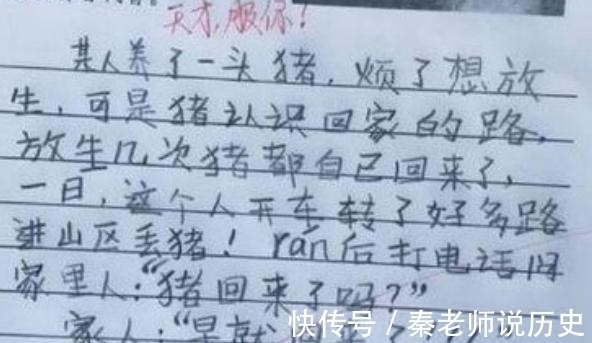 天才,服你!
某人养了一头猪,烦了想放
生,可是猪认识回家的路,
放生几次猪都自已回来了,
一日,这个人开车转了好多路
进山区丢猪!rán后打电话问
家里人:“猪回来了吗?”
家人:“早就
快传号 / 秦老师说历史